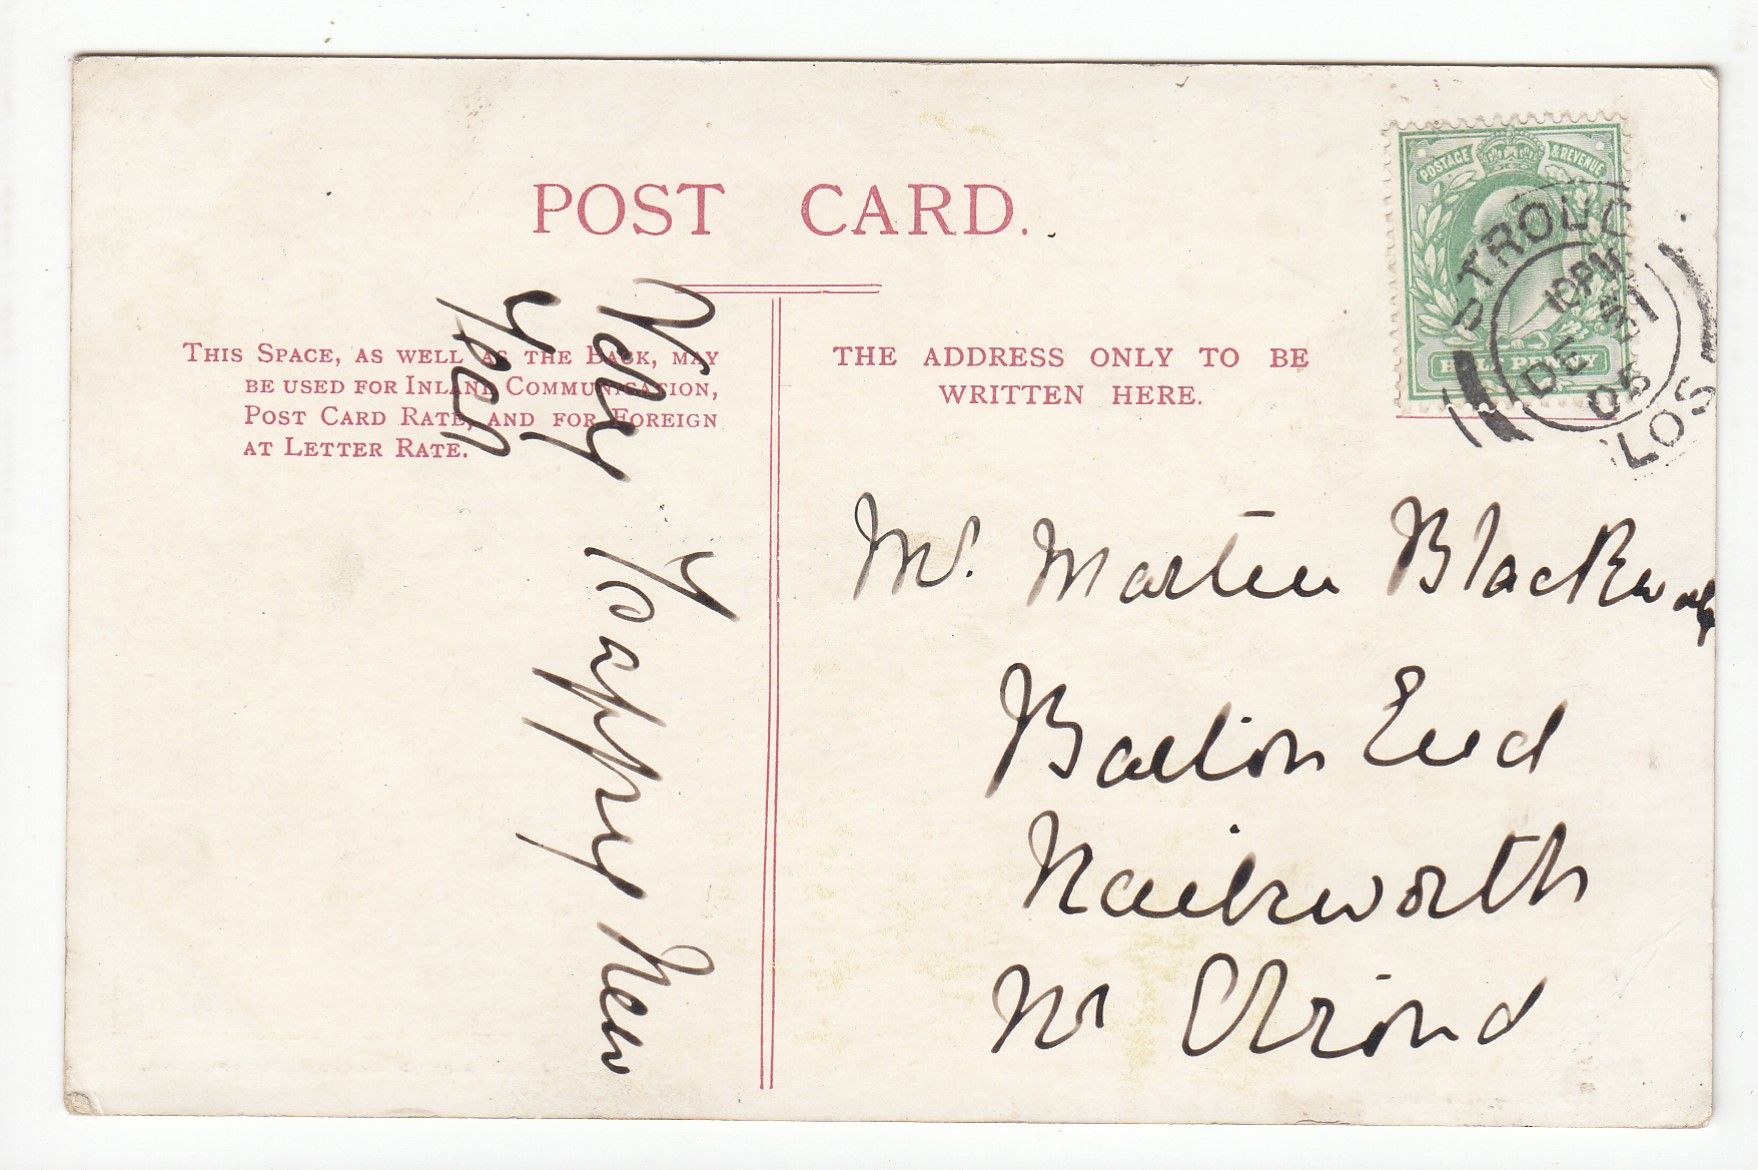 POST CARD.
THIS SPACE, AS WELL AS THE BACK, MAY
BE USED FOR INLAND COMMUNICATION,
POST CARD RATE, AND FOR FOREIGN
AT LETTER RATE.
Very Happy New
Year
THE ADDRESS ONLY TO BE
WRITTEN HERE.
POSTAGE & REVENUE
HALFPENNY
STROUD
10 PM
DE 31
06
GLOS
Mr. Martin
Barton End
Nailsworth
Nr Stroud